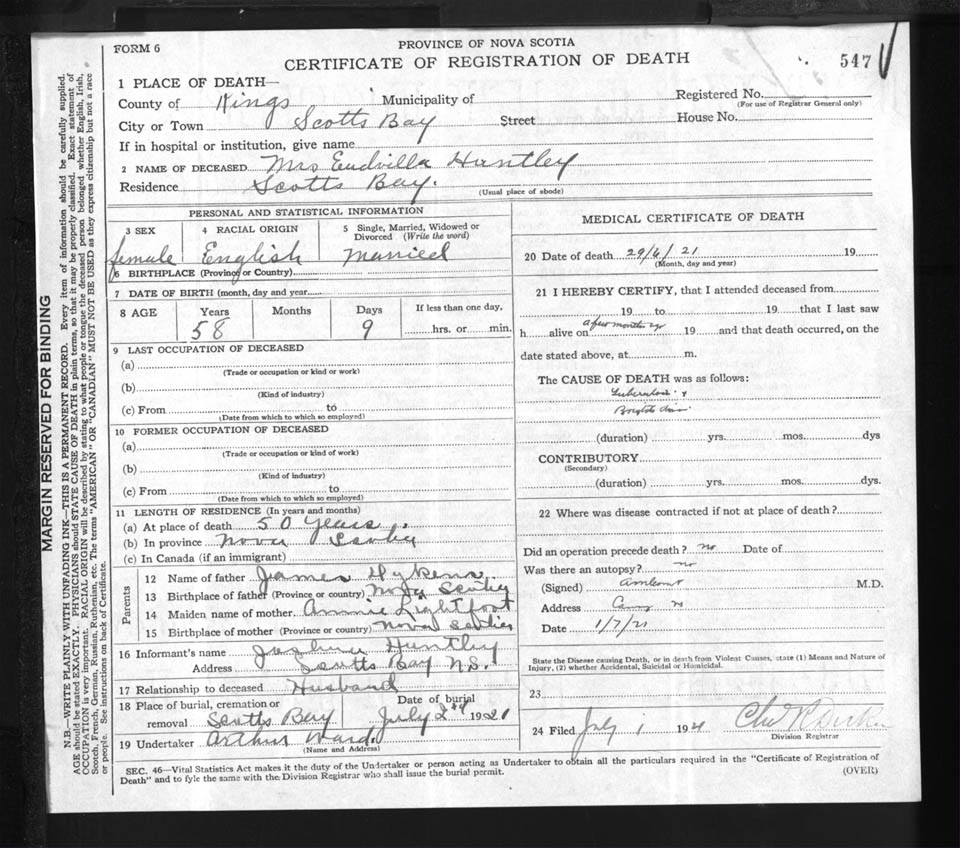 FORM 6
PROVINCE OF NOVA SCOTIA
CERTIFICATE OF REGISTRATION OF DEATH
547
1 PLACE OF DEATH—
County of Kings Municipality of Registered No.
(For use of Registrar General only)
City or Town Scotts Bay Street House No.
If in hospital or institution, give name
2 NAME OF DECEASED Mrs Eudvilla Huntley
Residence Scotts Bay.
(Usual place of abode)
PERSONAL AND STATISTICAL INFORMATION
3 SEX 4 RACIAL ORIGIN 5 Single, Married, Widowed or Divorced (Write the word)
female English Married
6 BIRTHPLACE (Province or Country)
7 DATE OF BIRTH (month, day and year
8 AGE Years Months Days If less than one day,
58 9 hrs. or min.
9 LAST OCCUPATION OF DECEASED
(a)
(Trade or occupation or kind or work)
(b)
(Kind of industry)
(c) From to
(Date from which to which so employed)
10 FORMER OCCUPATION OF DECEASED
(a)
(Trade or occupation or kind or work)
(b)
(Kind of industry)
(c) From to
(Date from which to which so employed)
11 LENGTH OF RESIDENCE (In years and months)
(a) At place of death 50 Years.
(b) In province Nova Scotia
(c) In Canada (if an immigrant)
Parents
12 Name of father James Hykens
13 Birthplace of father (Province or country) Nova Scotia
14 Maiden name of mother Annie Lightfoot
15 Birthplace of mother (Province or country) Nova Scotia
16 Informant's name Huntley
Address Scotts Bay N.S.
17 Relationship to deceased Husband
18 Place of burial, cremation or Date of burial
removal Scotts Bay July 2nd 1921
19 Undertaker Arthur Ward.
(Name and Address)
MEDICAL CERTIFICATE OF DEATH
20 Date of death 29/6/21 19
(Month, day and year)
21 I HEREBY CERTIFY, that I attended deceased from
19 to 19 that I last saw
h alive on a few months ago 19 and that death occurred, on the
date stated above, at m.
The CAUSE OF DEATH was as follows:
(duration) yrs. mos. dys
CONTRIBUTORY
(Secondary)
(duration) yrs. mos. dys.
22 Where was disease contracted if not at place of death?
Did an operation precede death? no Date of
Was there an autopsy? no
(Signed) M.D.
Address
Date 1/7/21
State the Disease causing Death, or in death from Violent Causes, state (1) Means and Nature of
Injury, (2) whether Accidental, Suicidal or Homicidal.
23
24 Filed July 1 1921
Division Registrar
SEC. 46—Vital Statistics Act makes it the duty of the Undertaker or person acting as Undertaker to obtain all the particulars required in the "Certificate of Registration of
Death" and to fyle the same with the Division Registrar who shall issue the burial permit.
(OVER)
MARGIN RESERVED FOR BINDING
N.B.—WRITE PLAINLY WITH UNFADING INK—THIS IS A PERMANENT RECORD. Every item of information should be carefully supplied.
AGE should be stated EXACTLY. PHYSICIANS should STATE CAUSE OF DEATH in plain terms, so that it may be properly classified. Exact statement of
OCCUPATION is very important. RACIAL ORIGIN will be described by stating to what people or tongue the deceased person belonged whether English, Irish,
Scotch, French, German, Russian, Ruthenian, etc. The terms "AMERICAN" OR "CANADIAN" MUST NOT BE USED as they express citizenship but not a race
or people. See instructions on back of Certificate.